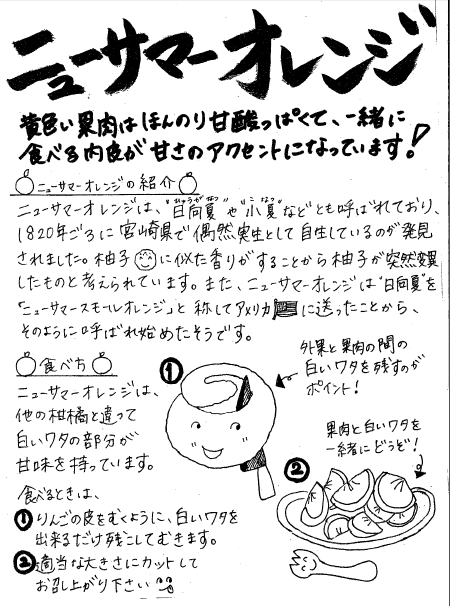 ニューサマーオレンジ
黄色い果肉はほんのり甘酸っぱくて、一緒に
食べる内皮が甘さのアクセントになっています!
ニューサマーオレンジの紹介
ニューサマーオレンジは、"日向夏"や"小夏"などとも呼ばれており、
ひゅうがなつ こなつ
1820年ごろに宮崎県で偶然実生として自生しているのが発見
されました。柚子に似た香りがすることから柚子が突然変異
したものと考えられています。また、ニューサマーオレンジは"日向夏"を
「ニューサマースモールオレンジ」と称してアメリカに送ったことから、
そのように呼ばれ始めたそうです。
食べ方
ニューサマーオレンジは、
他の柑橘と違って
白いワタの部分が
甘味を持っています。
食べるときは、
①りんごの皮をむくように、白いワタを
出来るだけ残こしてむきます。
②適当な大きさにカットして
お召し上がり下さい
①
外果と果肉の間の
白いワタを残すのが
ポイント!
②
果肉と白いワタを
一緒にどうぞ!